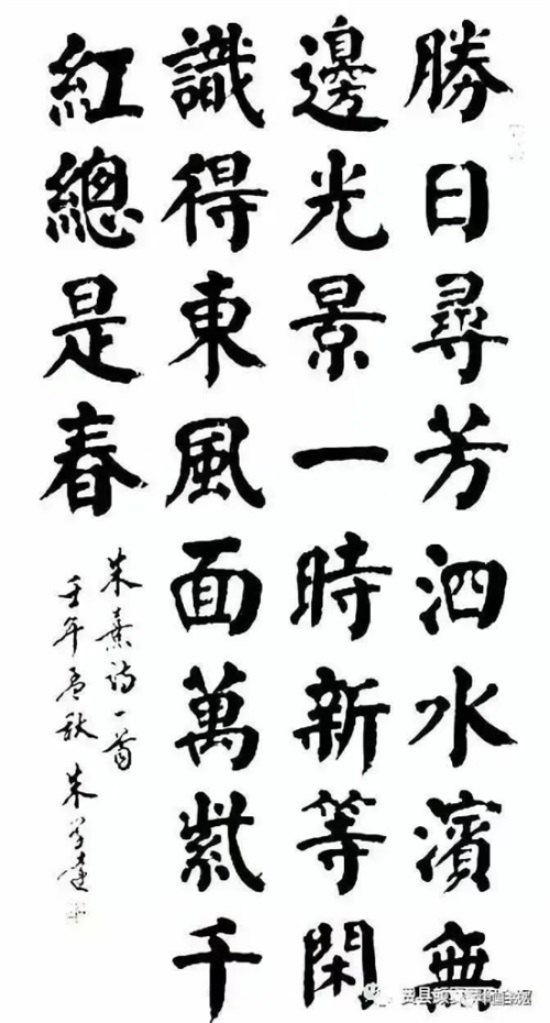 勝日尋芳泗水濱無
邊光景一時新等閑
識得東風面萬紫千
紅總是春
朱熹诗一首
壬年孟秋 朱